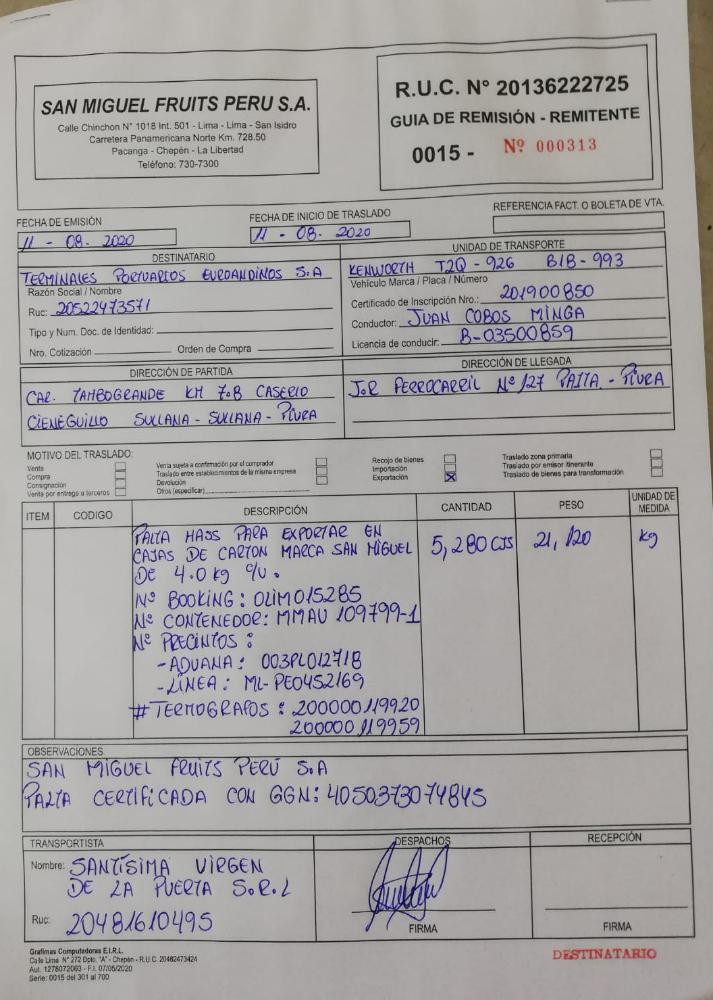 SAN MIGUEL FRUITS PERU S.A.
Calle Chinchon N° 1018 Int. 501 - Lima - Lima - San Isidro
Carretera Panamericana Norte Km. 728.50
Pacanga - Chepén - La Libertad
Teléfono: 730-7300
R.U.C. N° 20136222725
GUIA DE REMISIÓN - REMITENTE
0015 - Nº 000313
FECHA DE EMISIÓN
11 - 08. 2020
FECHA DE INICIO DE TRASLADO
11 - 08. 2020
REFERENCIA FACT. O BOLETA DE VTA.
DESTINATARIO
TERMINALES PORTUARIOS EUROANDINOS S.A
Razón Social / Nombre
Ruc: 20522473571
Tipo y Num. Doc. de Identidad:
Nro. Cotización Orden de Compra
UNIDAD DE TRANSPORTE
KENWORTH T2Q - 926 B1B - 993
Vehículo Marca / Placa / Número
Certificado de Inscripción Nro.: 201900850
Conductor: JUAN COBOS MINGA
Licencia de conducir: B-03500859
DIRECCIÓN DE PARTIDA
CAR. TAMBOGRANDE KM 7.8 CASERIO
CIENEGUILLO SULLANA - SULLANA - PIURA
DIRECCIÓN DE LLEGADA
J.R FERROCARRIL Nº 127 PAITA - PIURA
MOTIVO DEL TRASLADO:
Venta
Compra
Consignación
Venta por entrega a terceros
Venta sujeta a confirmación por el comprador
Traslado entre establecimientos de la misma empresa
Devolución
Otros (especificar)
Recojo de bienes
Importación
Exportación X
Traslado zona primaria
Traslado por emisor itinerante
Traslado de bienes para transformación
ITEM CODIGO DESCRIPCIÓN CANTIDAD PESO UNIDAD DE MEDIDA
PALTA HASS PARA EXPORTAR EN
CAJAS DE CARTON MARCA SAN MIGUEL 5,280 CJS 21,120 kg
DE 4.0 kg c/u.
Nº BOOKING: OLIM015285
Nº CONTENEDOR: MMAU 109799-1
Nº PRECINTOS :
- ADUANA : 003PL012718
- LÍNEA : ML-PE0452169
# TERMOGRAFOS : 200000119920
200000119959
OBSERVACIONES
SAN MIGUEL FRUITS PERÚ S.A
PALTA CERTIFICADA CON GGN: 4050373074845
TRANSPORTISTA
Nombre: SANTÍSIMA VIRGEN
DE LA PUERTA S.R.L
Ruc: 20481610495
DESPACHOS
FIRMA
RECEPCIÓN
FIRMA
Grafimas Computadoras E.I.R.L.
Calle Lima N° 272 Dpto. "A" - Chepén - R.U.C. 20482473424
Aut. 1278072063 - F.I. 07/05/2020
Serie: 0015 del 301 al 700
DESTINATARIO